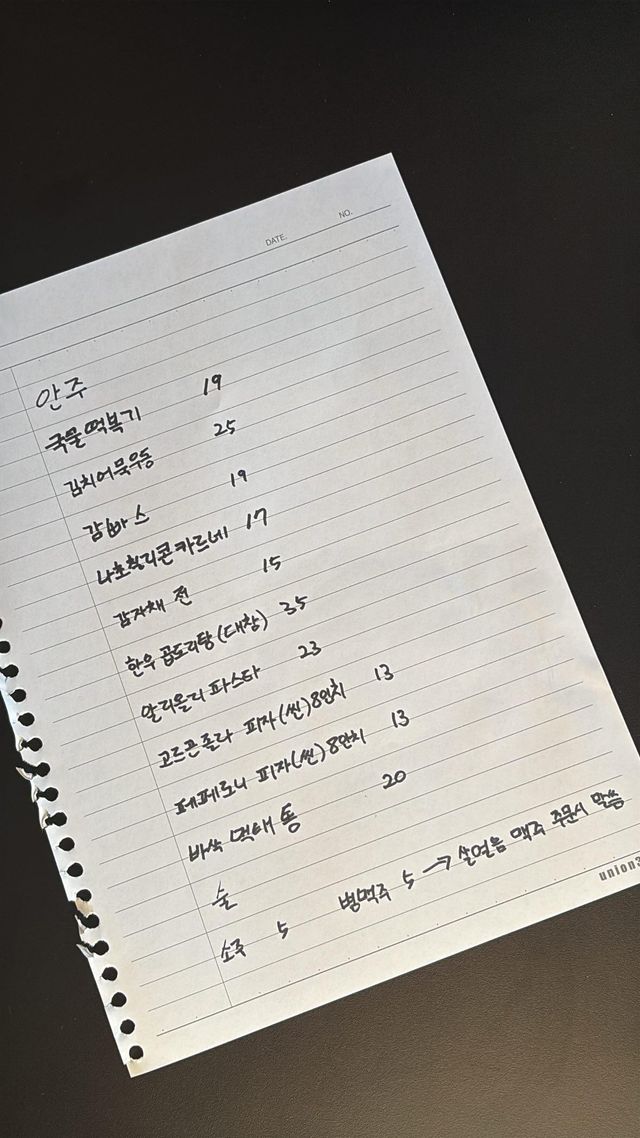 DATE. NO.
안주
국물떡볶기 19
김치어묵우동 25
감빠스 19
나초칠리콘카르네 17
감자채 전 15
한우 곱도리탕(대창) 35
알리올리 파스타 23
고르곤졸라 피자(씬)8인치 13
페페로니 피자(씬)8인치 13
바싹 먹태 통 20
술
소주 5 병맥주 5 → 살얼음 맥주 주문시 말씀